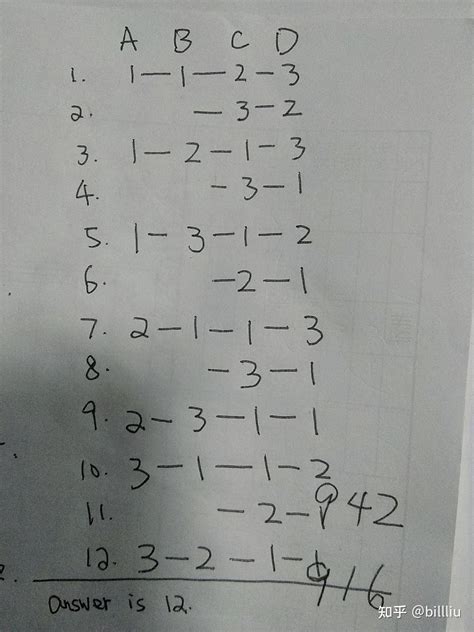 A B C D
1. 1-1-2-3
2. -3-2
3. 1-2-1-3
4. -3-1
5. 1-3-1-2
6. -2-1
7. 2-1-1-3
8. -3-1
9. 2-3-1-1
10. 3-1-1-2
11. -2-1 942
12. 3-2-1-1 916
Answer is 12.
知乎 @billliu